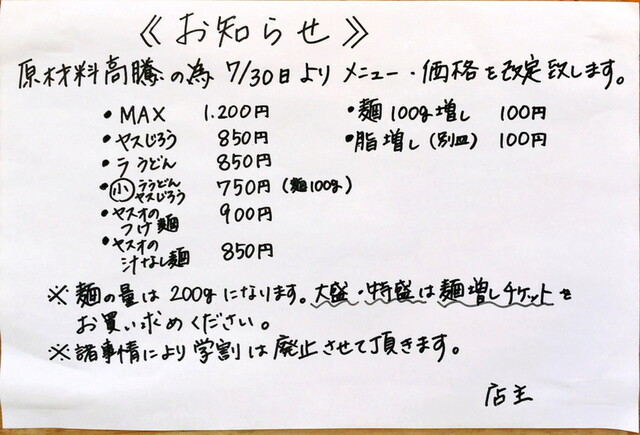 《お知らせ》
原材料高騰の為 7/30日より メニュー・価格を改定致します。
・MAX 1.200円 ・麺100g増し 100円
・ヤスじろう 850円 ・脂増し(別皿) 100円
・ラうどん 850円
・小 ラうどん ヤスじろう 750円 (麺100g)
・ヤスオのつけ麺 900円
・ヤスオの汁なし麺 850円
※麺の量は200gになります。大盛・特盛は麺増しチケットを
お買い求めください。
※諸事情により学割は廃止させて頂きます。
店主